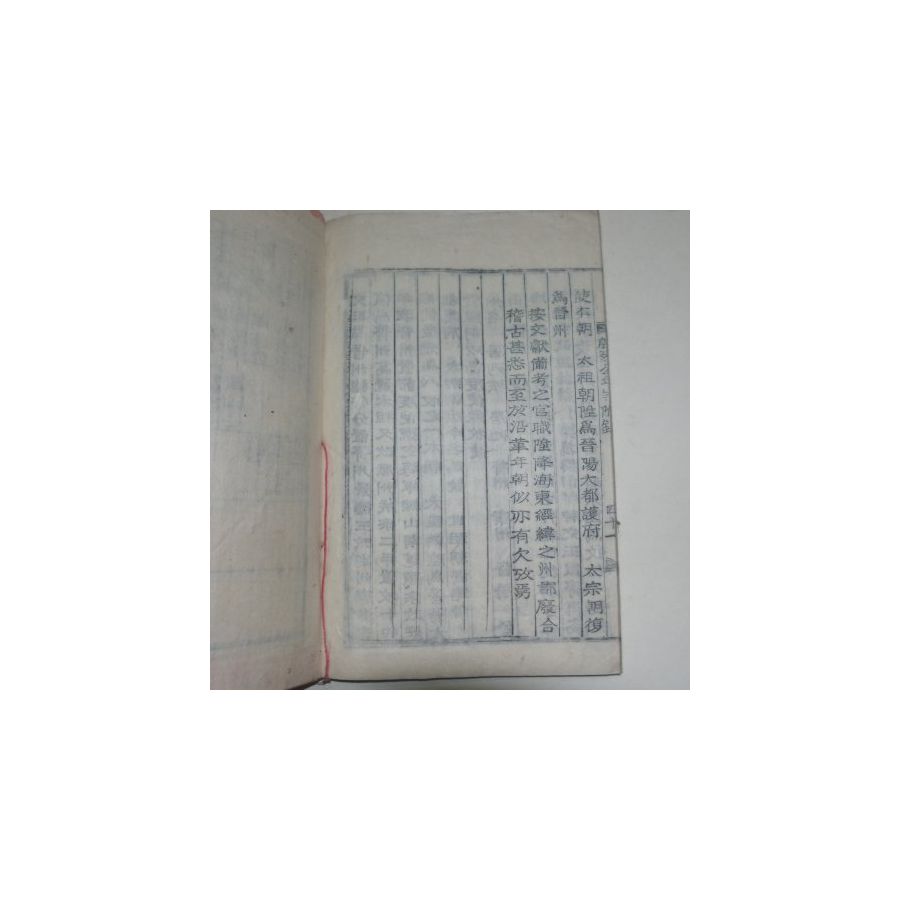 使本朝 太祖朝陞爲晉陽大都護府 太宗朝復
爲晉州
按文獻備考之官職陞降海東經緯之州郡廢合
稽古甚悉而至於沿革年朝似亦有欠攷焉
附錄
四十一